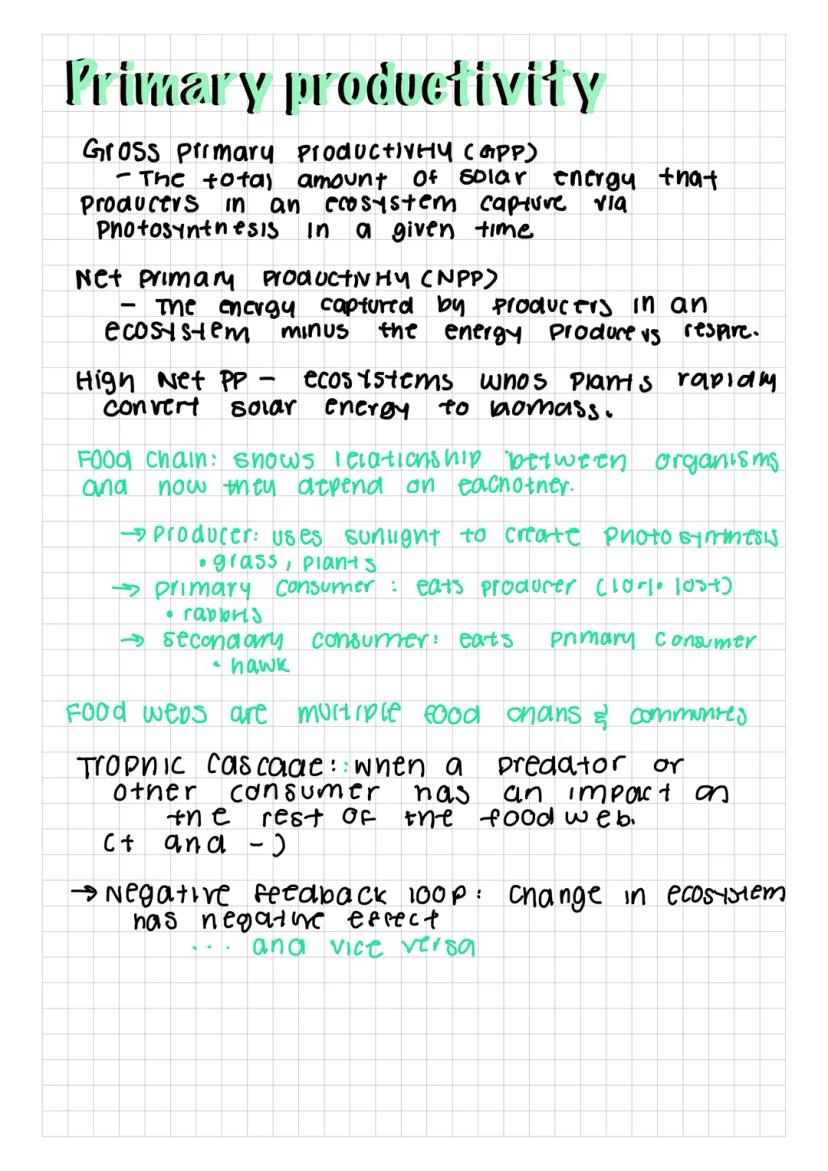 Primary productivity
Gross Primary Productivity (GPP)
- The total amount of solar energy that
producers in an ecosystem capture via
Photosynthesis in a given time
Net Primary Productivity (NPP)
- The energy captured by producers in an
ecosystem minus the energy producers respire.
High Net PP - ecosystems whos Plants rapidly
convert solar energy to biomass.
Food chain: shows relationship between organisms
and how they depend on eachother.
→ Producer: uses sunlight to create photosynthesis
• grass, plants
→ primary consumer: eats producer (10% lost)
• rabbits
→ secondary consumer: eats primary consumer
• hawk
Food webs are multiple food chans & communites
Trophic cascade:: when a predator or
other consumer has an impact on
the rest of the food web.
(+ and -)
→ Negative feedback loop: change in ecosystem
has negative effect
... and vice versa